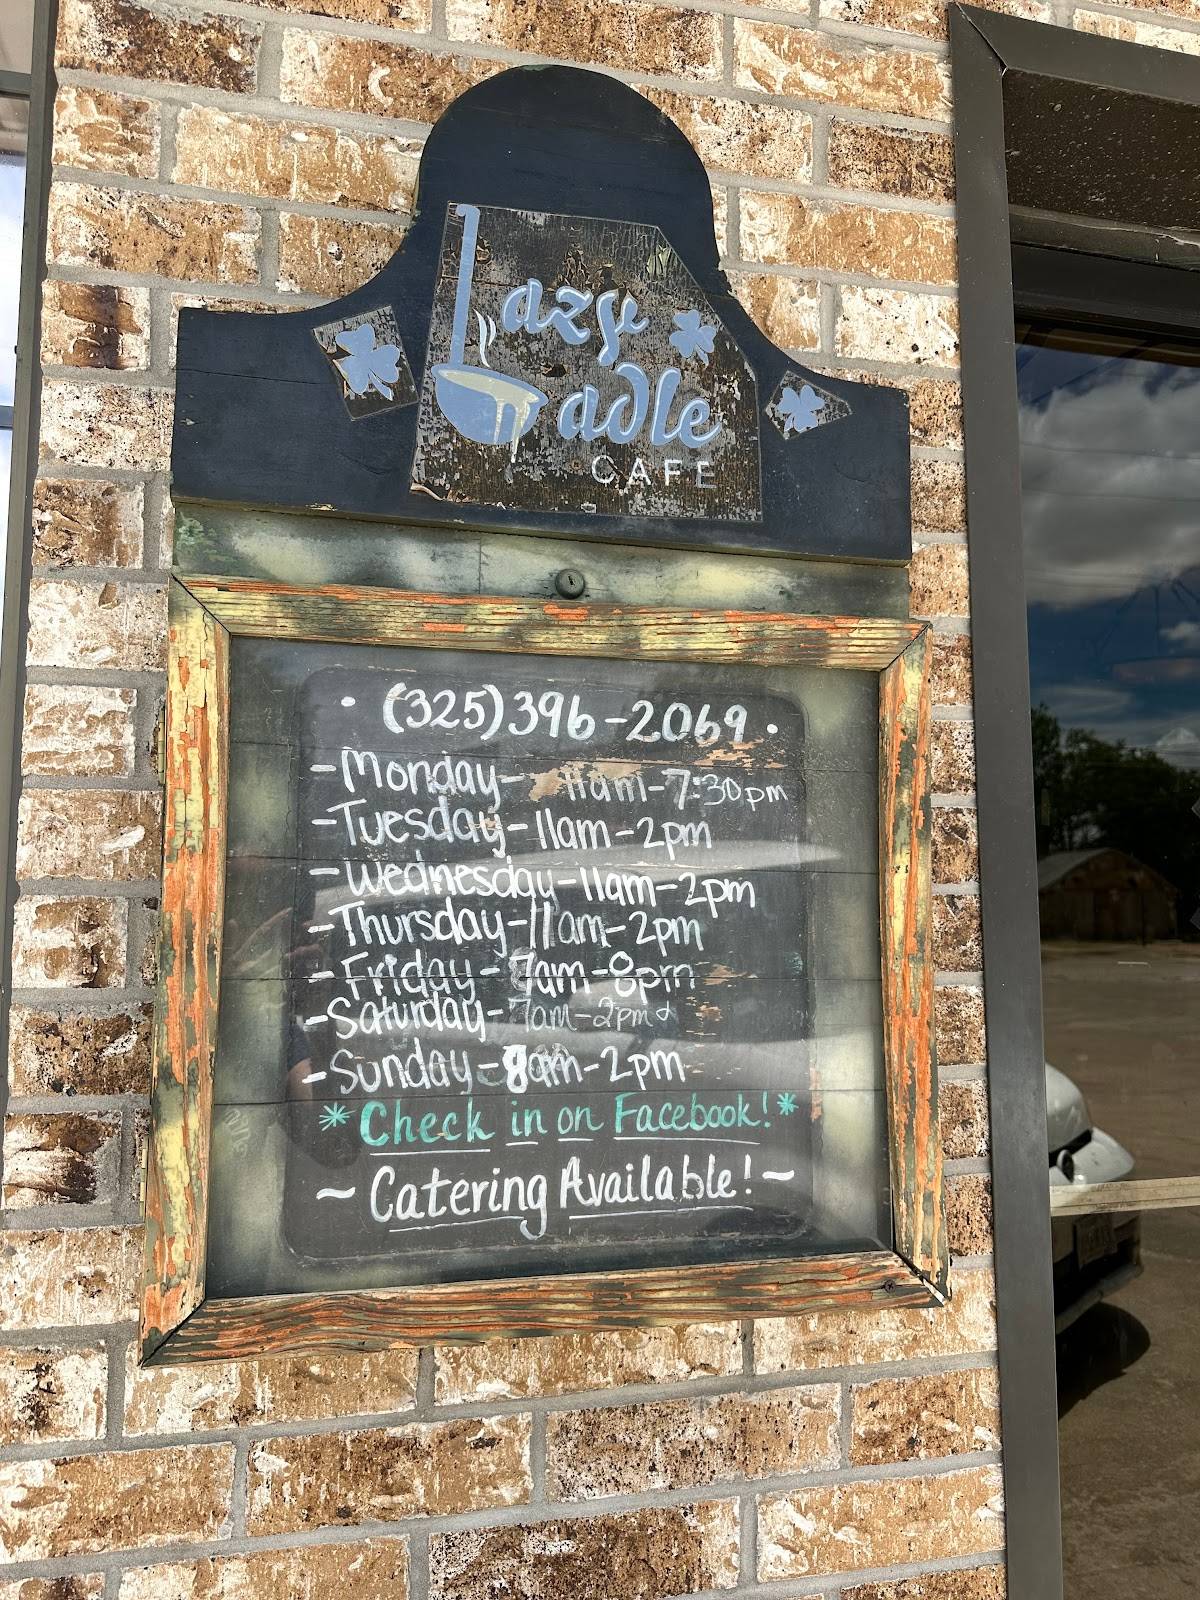 Lazy
Ladle
CAFE
• (325) 396-2069 •
-Monday- 11am-7:30pm
-Tuesday-11am-2pm
-Wednesday-11am-2pm
-Thursday-11am-2pm
-Friday-7am-8pm
-Saturday-7am-2pm
-Sunday-8am-2pm
*Check in on Facebook!*
~Catering Available!~